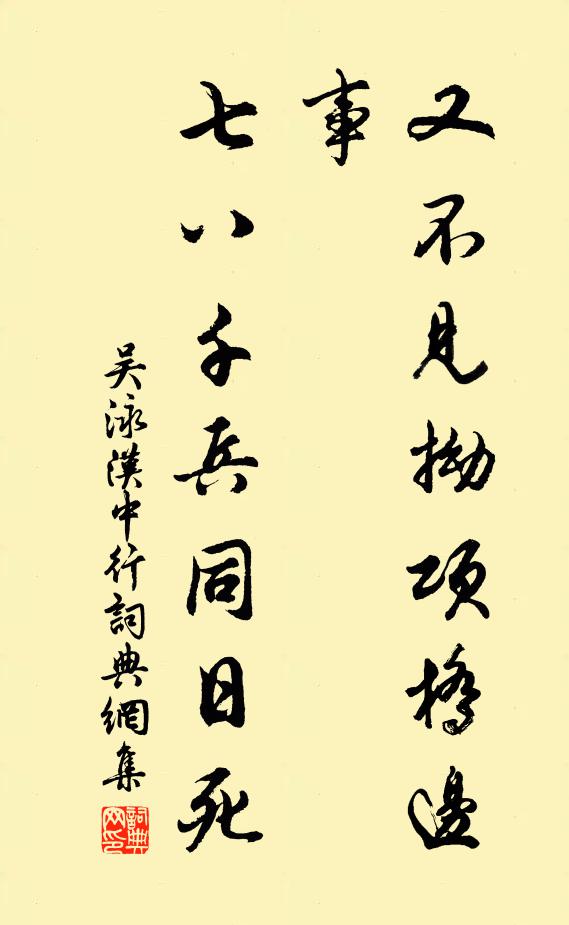 又不見拗項橋邊
事
七八千兵同日死
吳泳漢中行詞典網集
詞典
網印